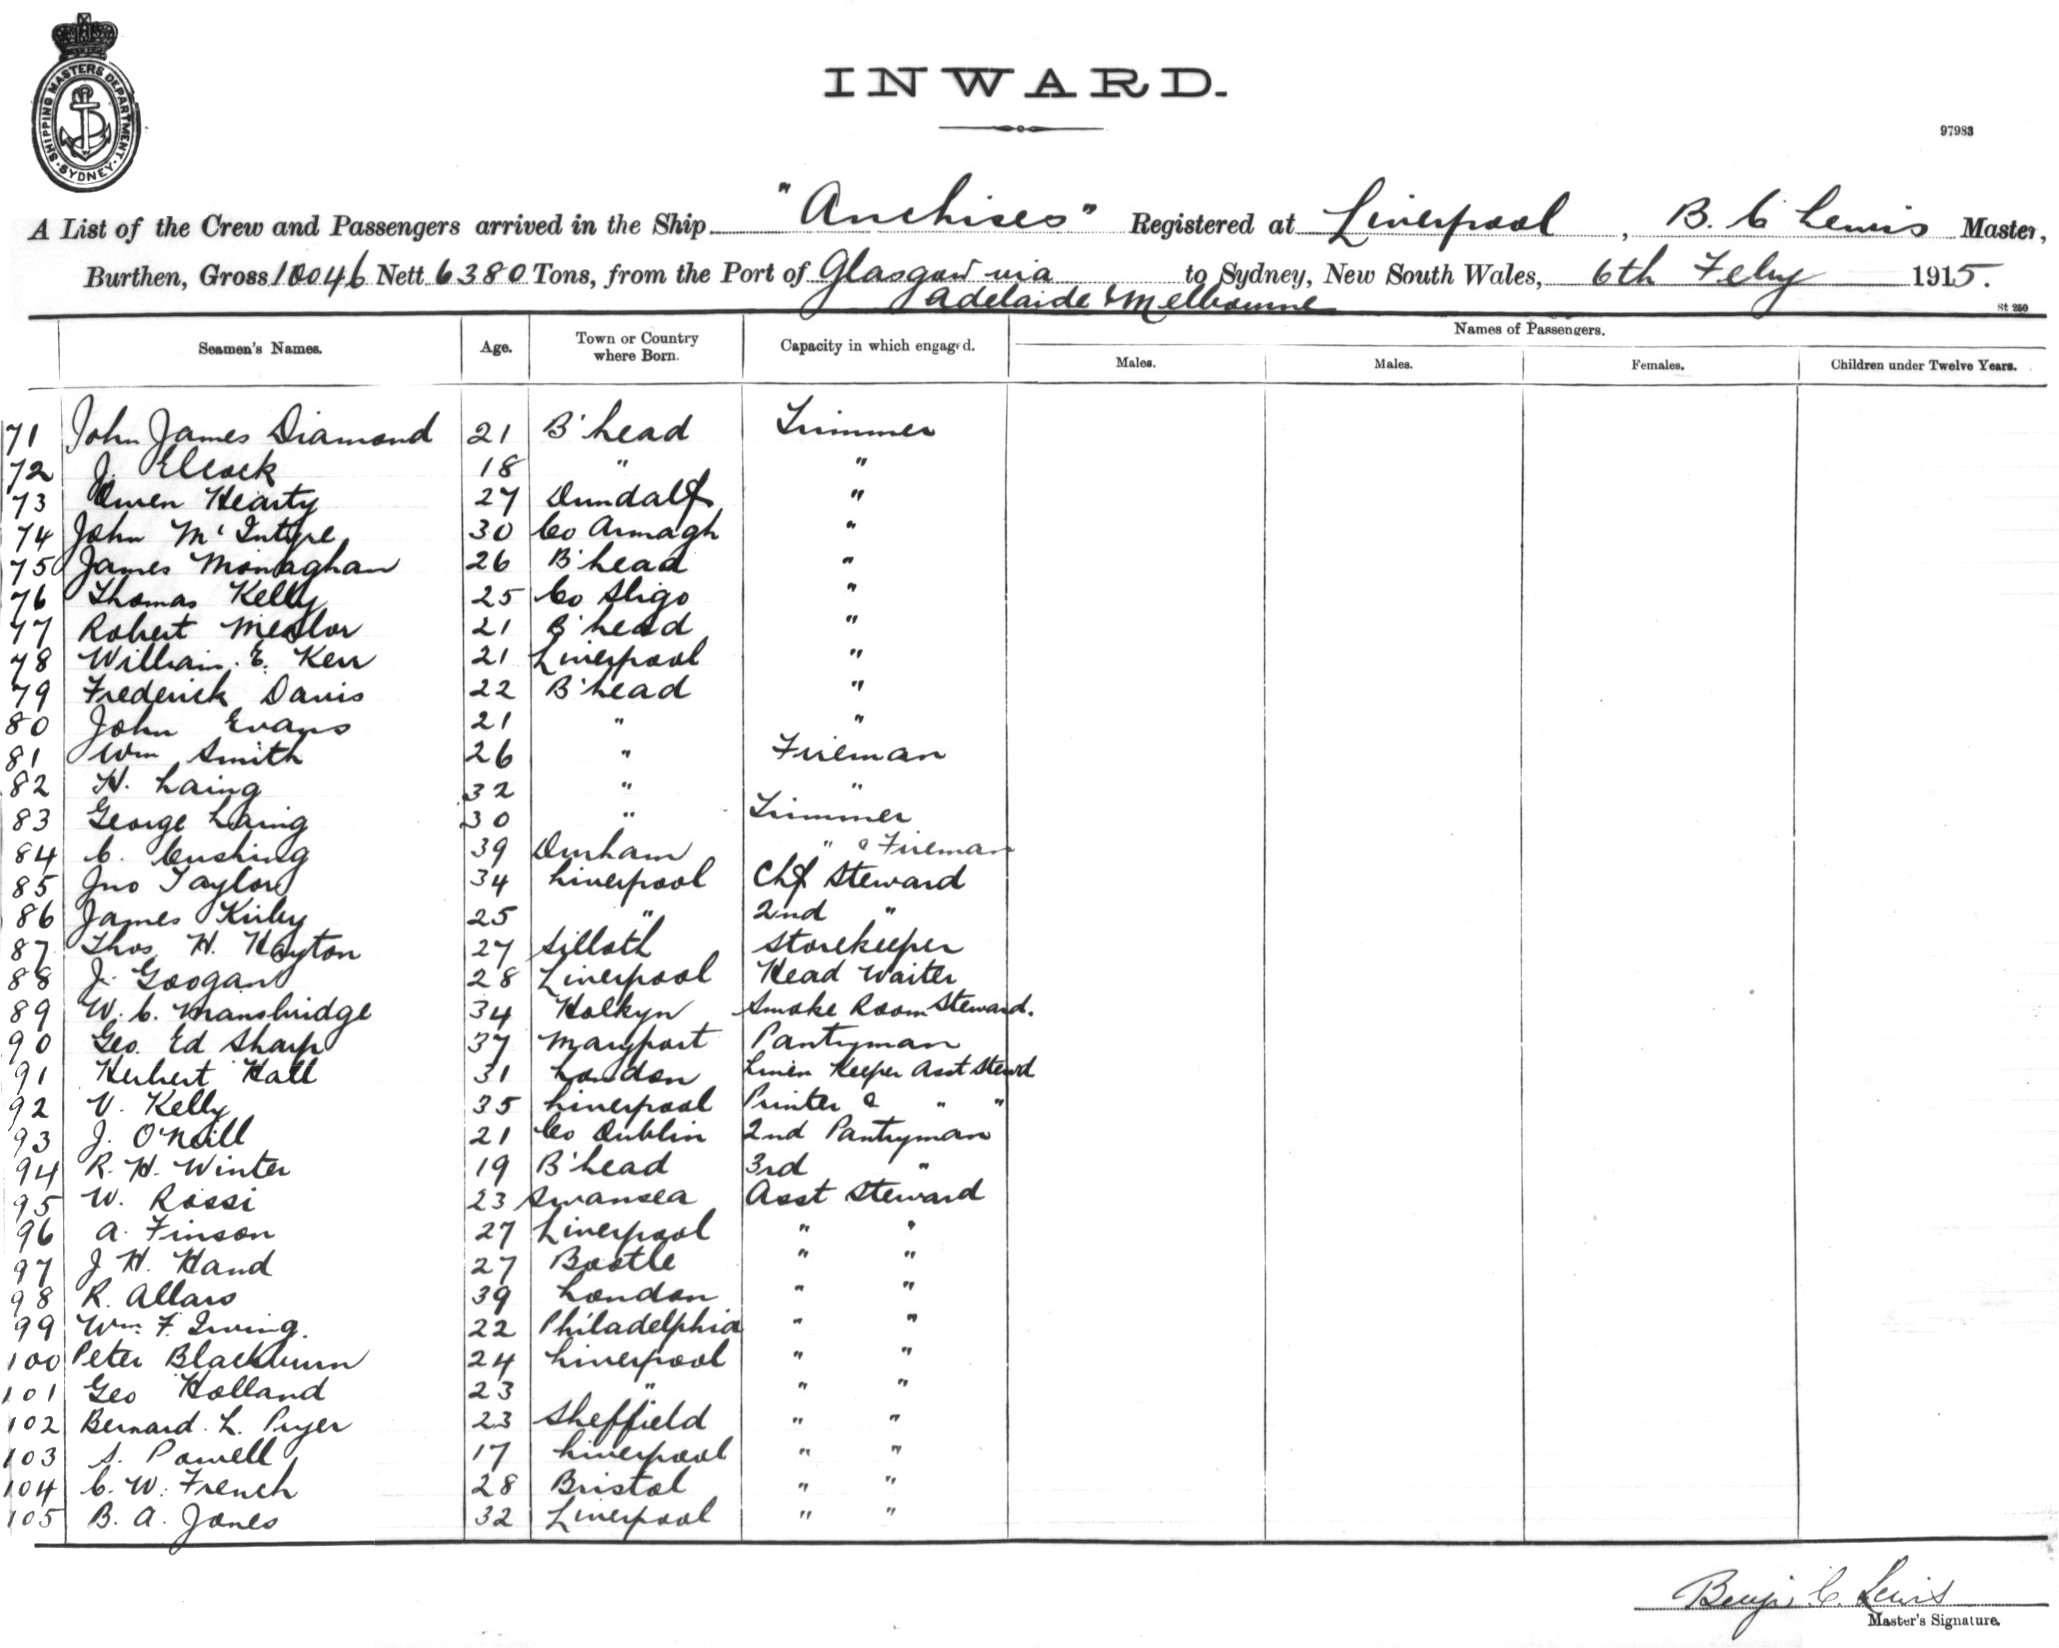 SHIPPING MASTERS DEPARTMENT · SYDNEY ·
INWARD.
97983
A List of the Crew and Passengers arrived in the Ship "Anchises" Registered at Liverpool, B. C Lewis Master,
Burthen, Gross 10046 Nett 6380 Tons, from the Port of Glasgow via to Sydney, New South Wales, 6th Feby 1915.
Adelaide & Melbourne
St 250
Seamen's Names. Age. Town or Country where Born. Capacity in which engaged. Names of Passengers.
Males. Males. Females. Children under Twelve Years.
71 John James Diamond 21 B'head Trimmer
72 J. Elcock 18 " "
73 Owen Hearty 27 Dundalk "
74 John Mc Intyre 30 Co Armagh "
75 James Monaghan 26 B'head "
76 Thomas Kelly 25 Co Sligo "
77 Robert Meslor 21 B'head "
78 William. E. Kerr 21 Liverpool "
79 Frederick Davis 22 B'head "
80 John Evans 21 " "
81 Wm Smith 26 " Fireman
82 H. Laing 32 " "
83 George Laing 30 " Trimmer
84 C. Cushing 39 Durham " & Fireman
85 Jno Taylor 34 Liverpool Chf Steward
86 James Kirby 25 " 2nd "
87 Thos H. Hayton 27 Silloth Storekeeper
88 J. Googan 28 Liverpool Head Waiter
89 W. C. Mansbridge 34 Halkyn Smoke Room Steward.
90 Geo. Ed Sharp 37 Maryport Pantryman
91 Herbert Hall 31 London Linen Keeper Asst Stewd
92 V. Kelly 35 Liverpool Printer & " "
93 J. O'Neill 21 Co Dublin 2nd Pantryman
94 R. H. Winter 19 B'head 3rd "
95 W. Rossi 23 Swansea Asst Steward
96 A. Finson 27 Liverpool " "
97 J H. Hand 27 Bootle " "
98 R. Allars 39 London " "
99 Wm. F. Irving. 22 Philadelphia " "
100 Peter Blackburn 24 Liverpool " "
101 Geo Holland 23 " " "
102 Bernard. L. Pryer 23 Sheffield " "
103 S. Powell 17 Liverpool " "
104 C. W. French 28 Bristol " "
105 B. A. Jones 32 Liverpool " "
Benj. C. Lewis
Master's Signature.